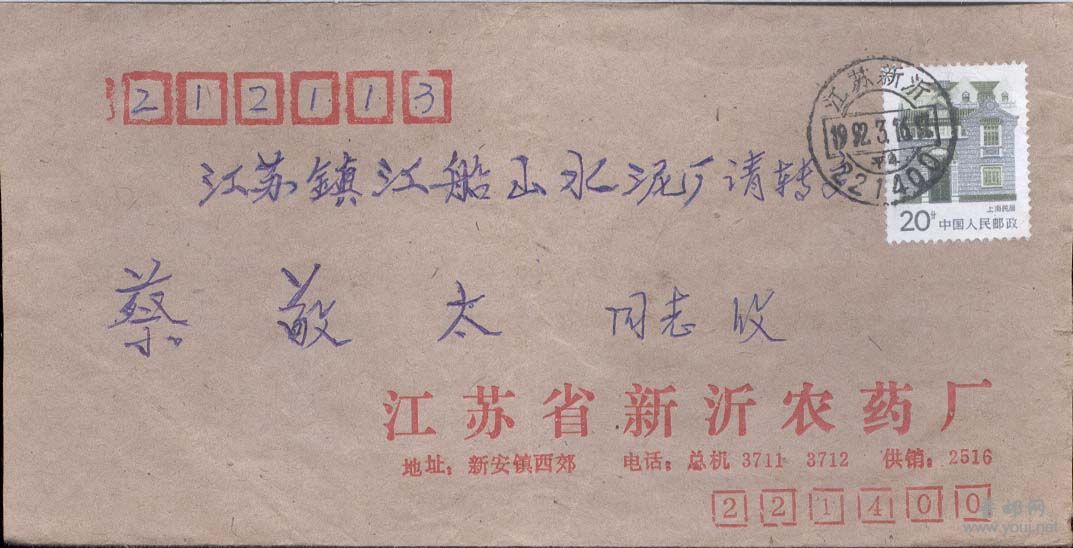 212113
江苏新沂
1992.3.16.
221400
上海民居
20分 中国人民邮政
江苏鎮江船山水泥厂请转
蔡敬太 同志收
江苏省新沂农药厂
地址：新安镇西郊 电话：总机 3711 3712 供销：2516
221400
www.youj.net